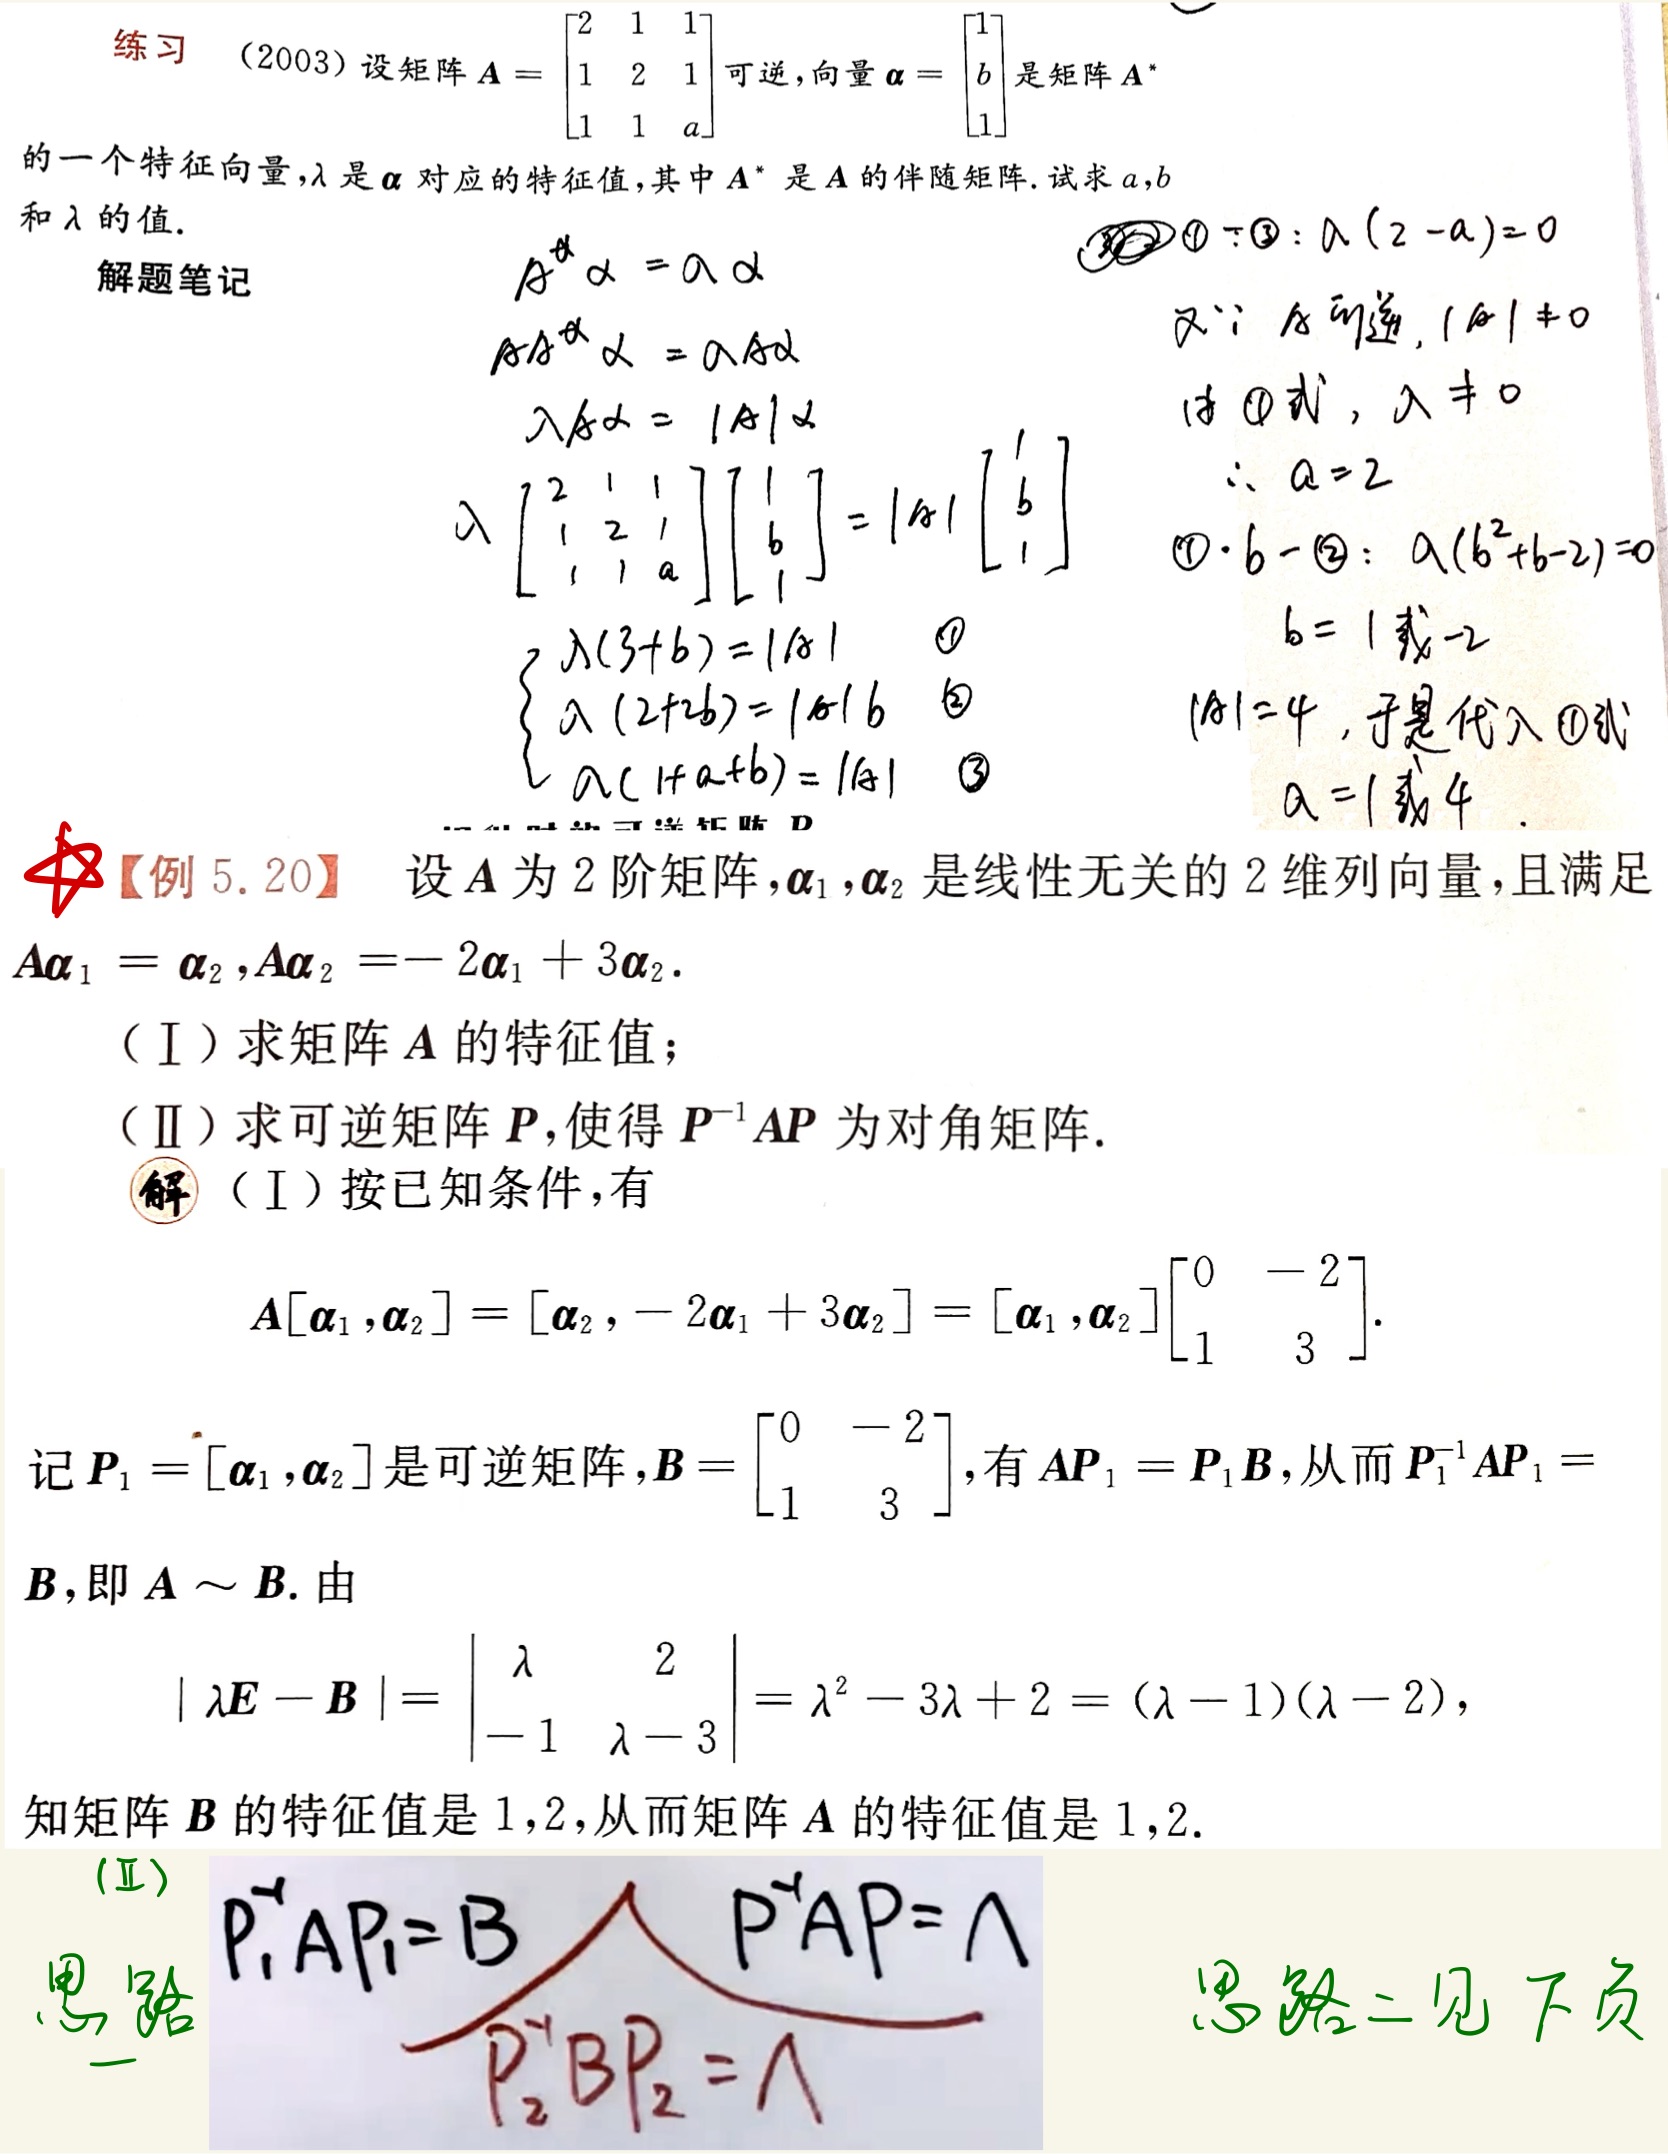 练习 (2003) 设矩阵 A = [2 1 1; 1 2 1; 1 1 a] 可逆,向量 α = [1; b; 1] 是矩阵 A*
的一个特征向量,λ 是 α 对应的特征值,其中 A* 是 A 的伴随矩阵.试求 a,b
和 λ 的值.
解题笔记
A*α = λα
AA*α = λAα
λAα = |A|α
λ [2 1 1; 1 2 1; 1 1 a] [1; b; 1] = |A| [1; b; 1]
λ(3+b)=|A| ①
λ(2+2b)=|A|b ②
λ(1+a+b)=|A| ③
①-③: λ(2-a)=0
又∵ A可逆, |A|≠0
由①式, λ≠0
∴ a=2
①·b-②: λ(b²+b-2)=0
b=1或-2
|A|=4,于是代入①式
λ=1或4.
【例 5.20】 设 A 为 2 阶矩阵,α₁,α₂ 是线性无关的 2 维列向量,且满足
Aα₁ = α₂,Aα₂ =- 2α₁ + 3α₂.
(Ⅰ) 求矩阵 A 的特征值;
(Ⅱ) 求可逆矩阵 P,使得 P⁻¹AP 为对角矩阵.
解 (Ⅰ) 按已知条件,有
A[α₁,α₂] = [α₂,- 2α₁ + 3α₂] = [α₁,α₂][0 -2; 1 3].
记 P₁ = [α₁,α₂] 是可逆矩阵,B = [0 -2; 1 3],有 AP₁ = P₁B,从而 P₁⁻¹AP₁ =
B,即 A ~ B. 由
| λE - B | = |λ 2; -1 λ-3| = λ² - 3λ + 2 = (λ - 1)(λ - 2),
知矩阵 B 的特征值是 1,2,从而矩阵 A 的特征值是 1,2.
(Ⅱ)
思路一
P₁⁻¹AP₁=B P⁻¹AP=Λ
P₂⁻¹BP₂=Λ
思路二见下页